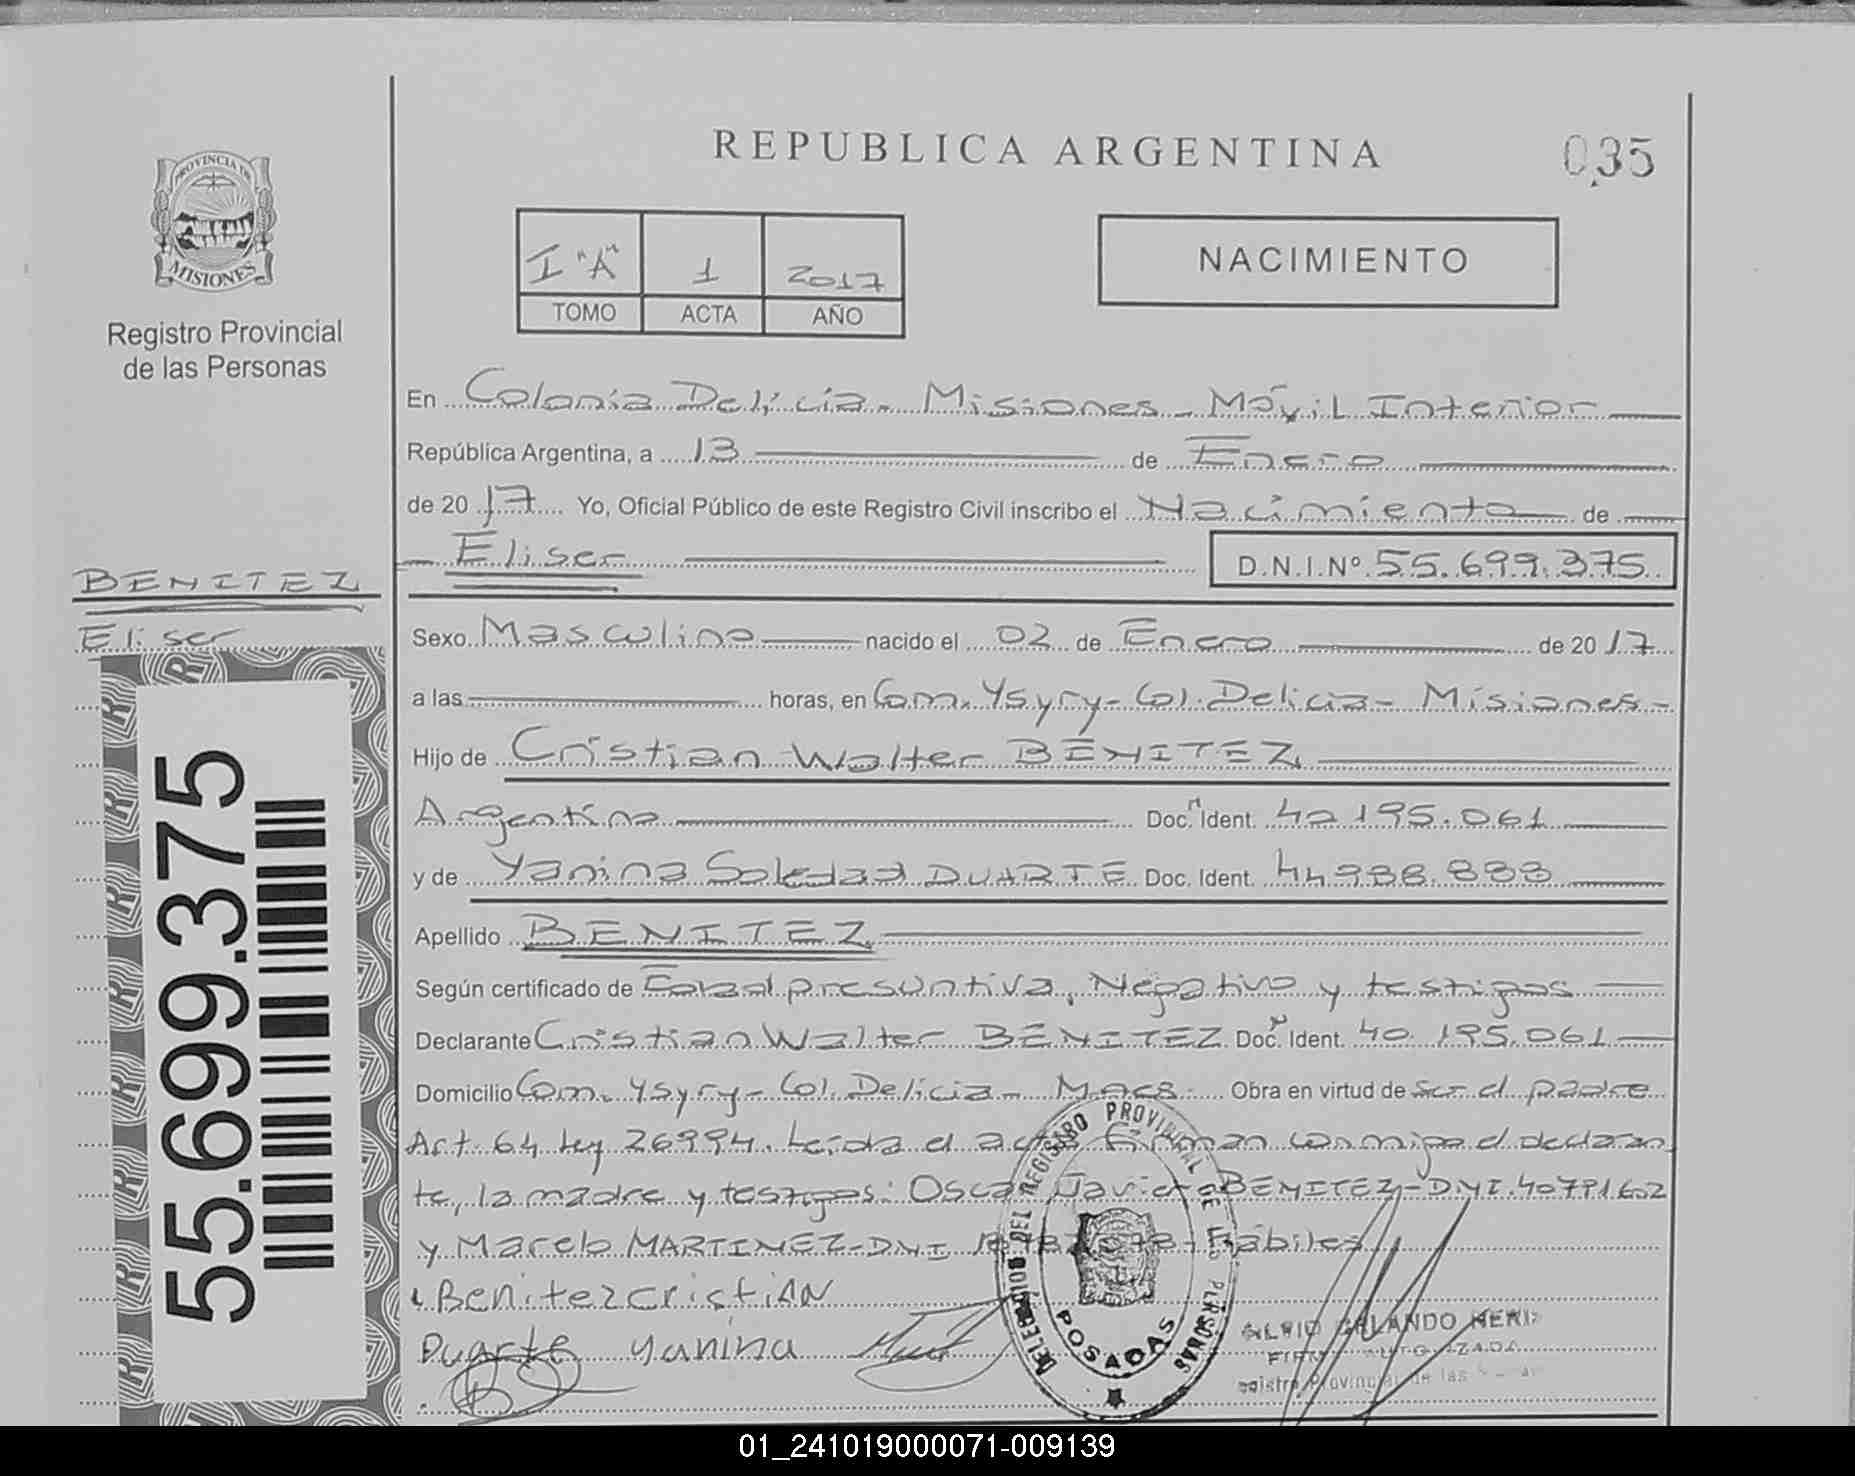 REPUBLICA ARGENTINA
035
PROVINCIA DE
MISIONES
Registro Provincial
de las Personas
I "A" 1 2017
TOMO ACTA AÑO
NACIMIENTO
En Colonia Delicia - Misiones - Móvil Interior
República Argentina, a 13 de Enero
de 2017 Yo, Oficial Público de este Registro Civil inscribo el Nacimiento de
Eliser D.N.I.Nº 55.699.375
BENITEZ
Eliser
55.699.375
Sexo Masculino nacido el 02 de Enero de 2017
a las horas, en Com. Ysyry - Col. Delicia - Misiones -
Hijo de Cristian Walter BENITEZ
Argentino Doc. Ident. 40 195.061
y de Yanina Soledad DUARTE Doc. Ident. 44.986.883
Apellido BENITEZ
Según certificado de Edad presuntiva, Negativo y testigos
Declarante Cristian Walter BENITEZ Doc. Ident. 40.195.061
Domicilio Com. Ysyry - Col. Delicia - Obra en virtud de ser el padre
Art. 64 Ley 26994. Leida el acta Firman conmigo el declaran
te, la madre y testigos: Oscar Javier BENITEZ - DNI. 40791602
y Marcelo MARTINEZ - DNI Hábiles
Benitez cristiAN
Duarte yanina
DELEGACION DEL REGISTRO PROVINCIAL DE LAS PERSONAS
POSADAS
ORLANDO NERI
FIRMA AUTORIZADA
Registro Provincial de las
01_241019000071-009139